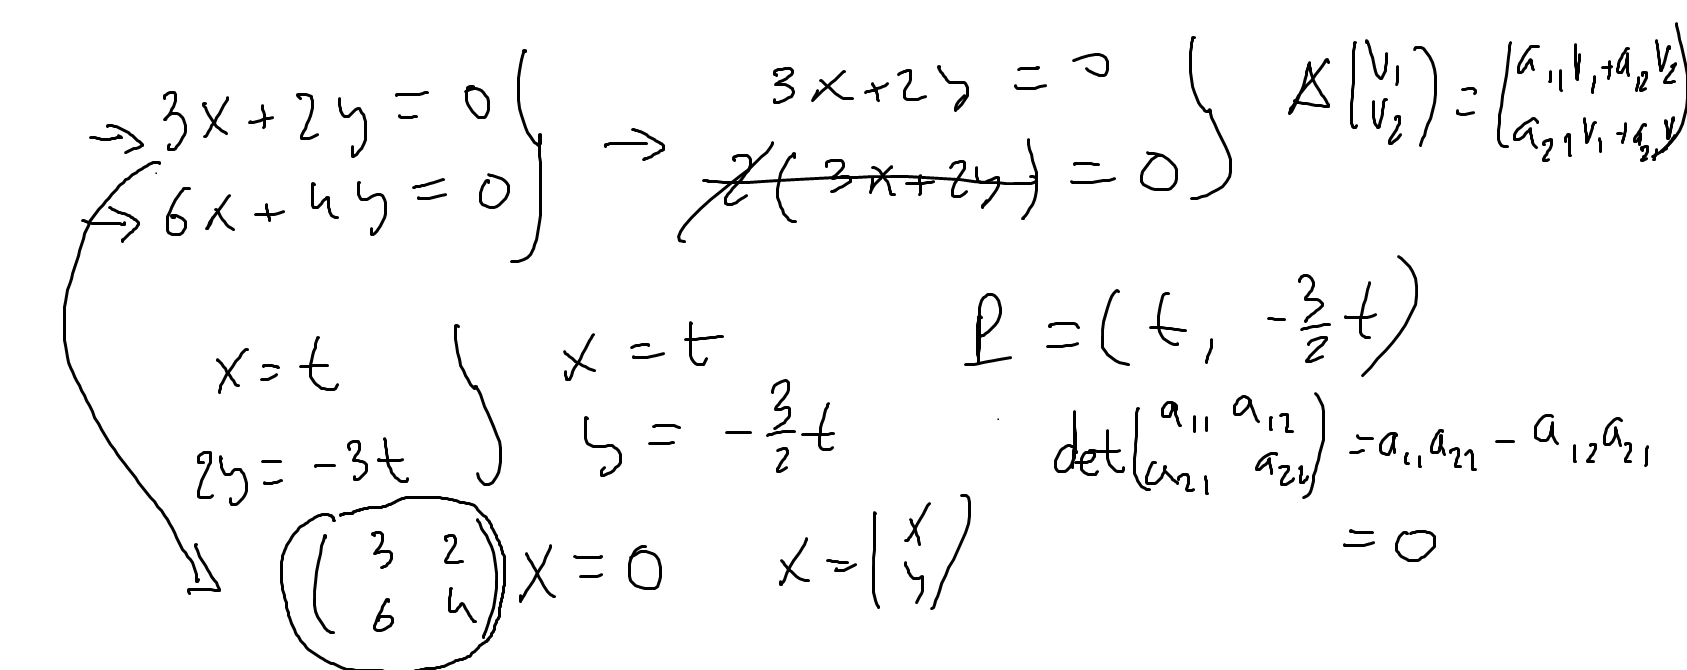 → 3x + 2y = 0 } → 3x + 2y = 0 }
→ 6x + 4y = 0 2(3x + 2y) = 0
A(v₁ v₂) = (a₁₁v₁ + a₁₂v₂
a₂₁v₁ + a₂₂v
x = t } x = t
2y = -3t y = -3/2 t
P = (t, -3/2 t)
det(a₁₁ a₁₂
a₂₁ a₂₂) = a₁₁a₂₂ - a₁₂a₂₁
= 0
(3 2
6 4) X = 0 X = (x
y)